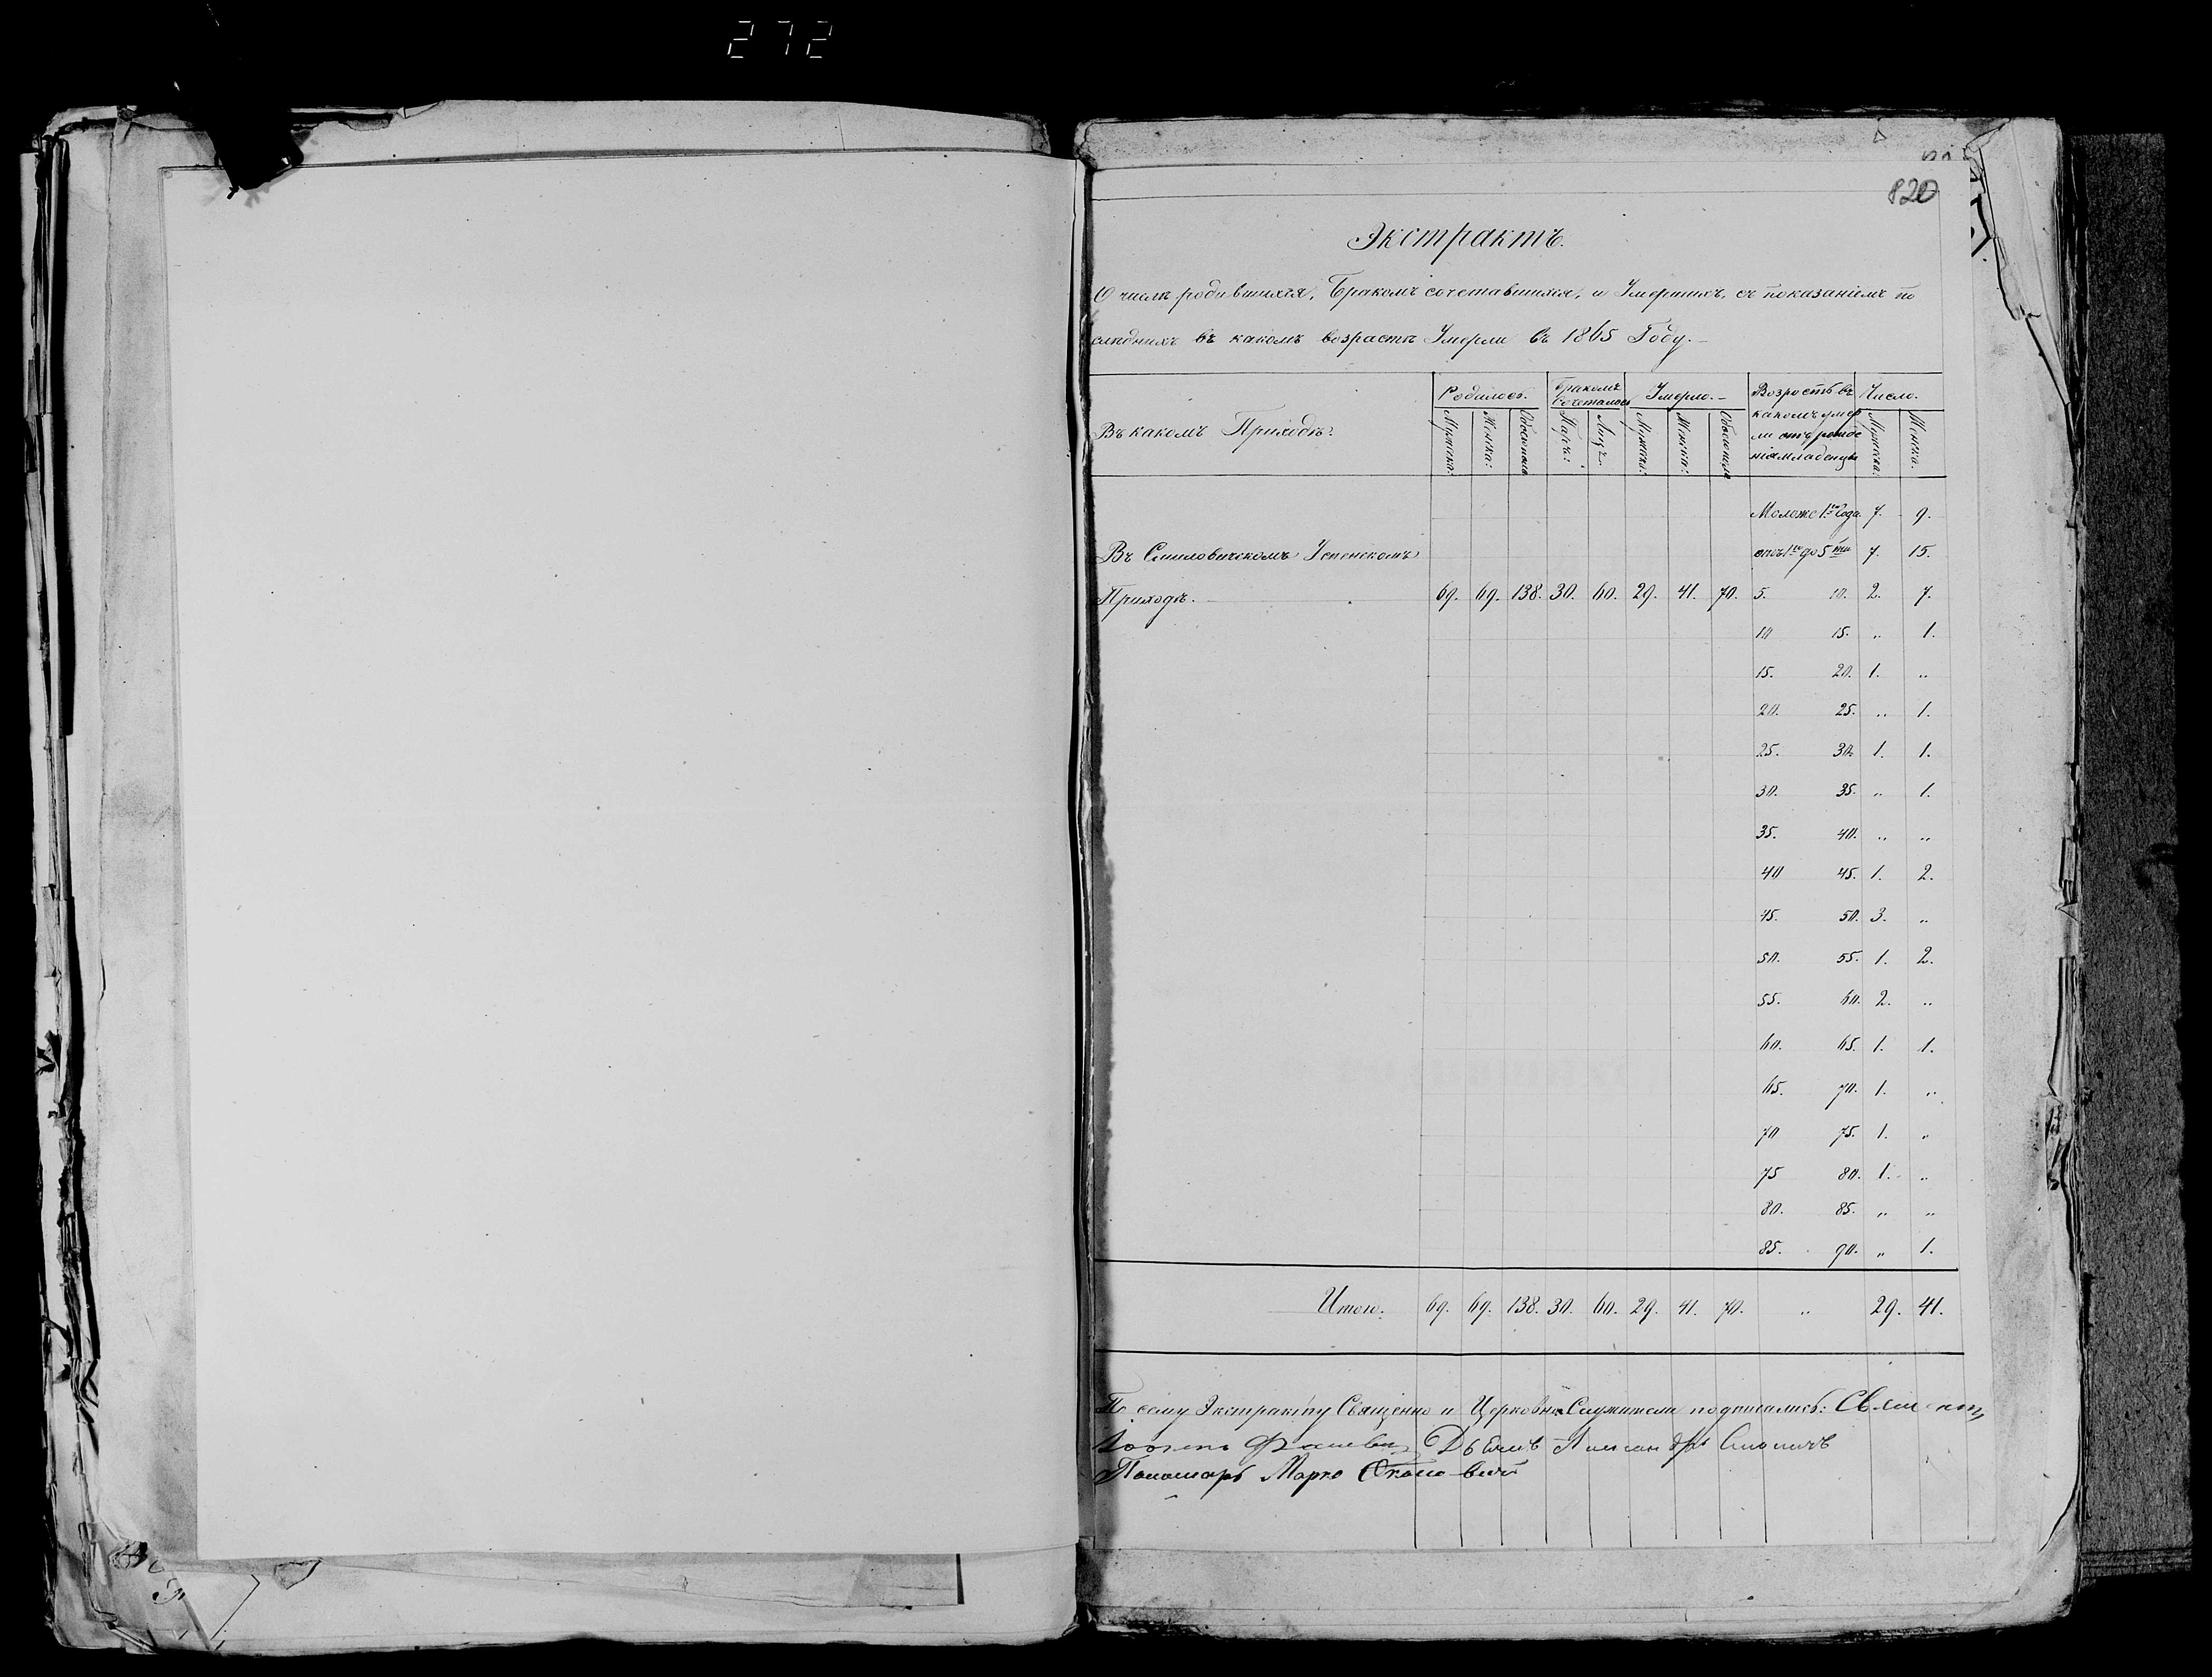 272
820
Экстрактъ.
О числѣ родившихся, Бракомъ сочетавшихся, и Умершихъ, съ показаніемъ по
слѣднихъ въ какомъ возрастѣ Умерли въ 1865 Году.
Въ какомъ Приходѣ: Родилось. Бракомъ сочеталось Умерло. Возростъ въ какомъ умер Число.
Мужска: Женска: Обоегополa Паръ: Лицъ. Мужска: Женска: Обоегопола ли отъ рожде Мужска: Женска.
нія младенцы
Моложе 1го Года. 7. 9.
Въ Смиловичскомъ Успенскомъ отъ 1го до 5ти 7. 15.
Приходѣ. 69. 69. 138. 30. 60. 29. 41. 70. 5. 10. 2. 7.
10 15. „ 1.
15. 20. 1. „
20. 25. „ 1.
25. 30. 1. 1.
30. 35. „ 1.
35. 40. „ „
40 45. 1. 2.
45. 50. 3. „
50. 55. 1. 2.
55. 60. 2. „
60. 65. 1. 1.
65. 70. 1. „
70 75. 1. „
75 80. 1. „
80. 85. „ „
85. 90. „ 1.
Итого: 69. 69. 138. 30. 60. 29. 41. 70. „ 29. 41.
Къ сему Экстракту Священно и Церковно Служители подписались: Священ
Дьячекъ Александръ
Пономарь Марко